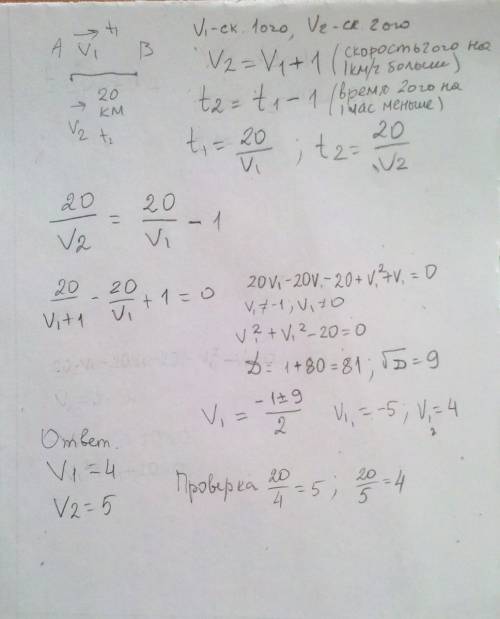 A V₁ → t₁ B
20 км
→ V₂ t₂
V₁-ск. 1ого, V₂-ск 2ого
V₂ = V₁ + 1 (скорость 2ого на 1км/ч больше)
t₂ = t₁ - 1 (время 2ого на 1 час меньше)
t₁ = 20/V₁ ; t₂ = 20/V₂
20/V₂ = 20/V₁ - 1
20/V₁+1 - 20/V₁ + 1 = 0
20V₁-20V₁-20+V₁²+V₁ = 0
V₁≠-1, V₁≠0
V₁²+V₁²-20=0
D = 1+80=81; √D=9
V₁ = -1±9/2 V₁₁ = -5; V₁₂ = 4
Ответ.
V₁ = 4
V₂ = 5
Проверка 20/4 = 5; 20/5 = 4